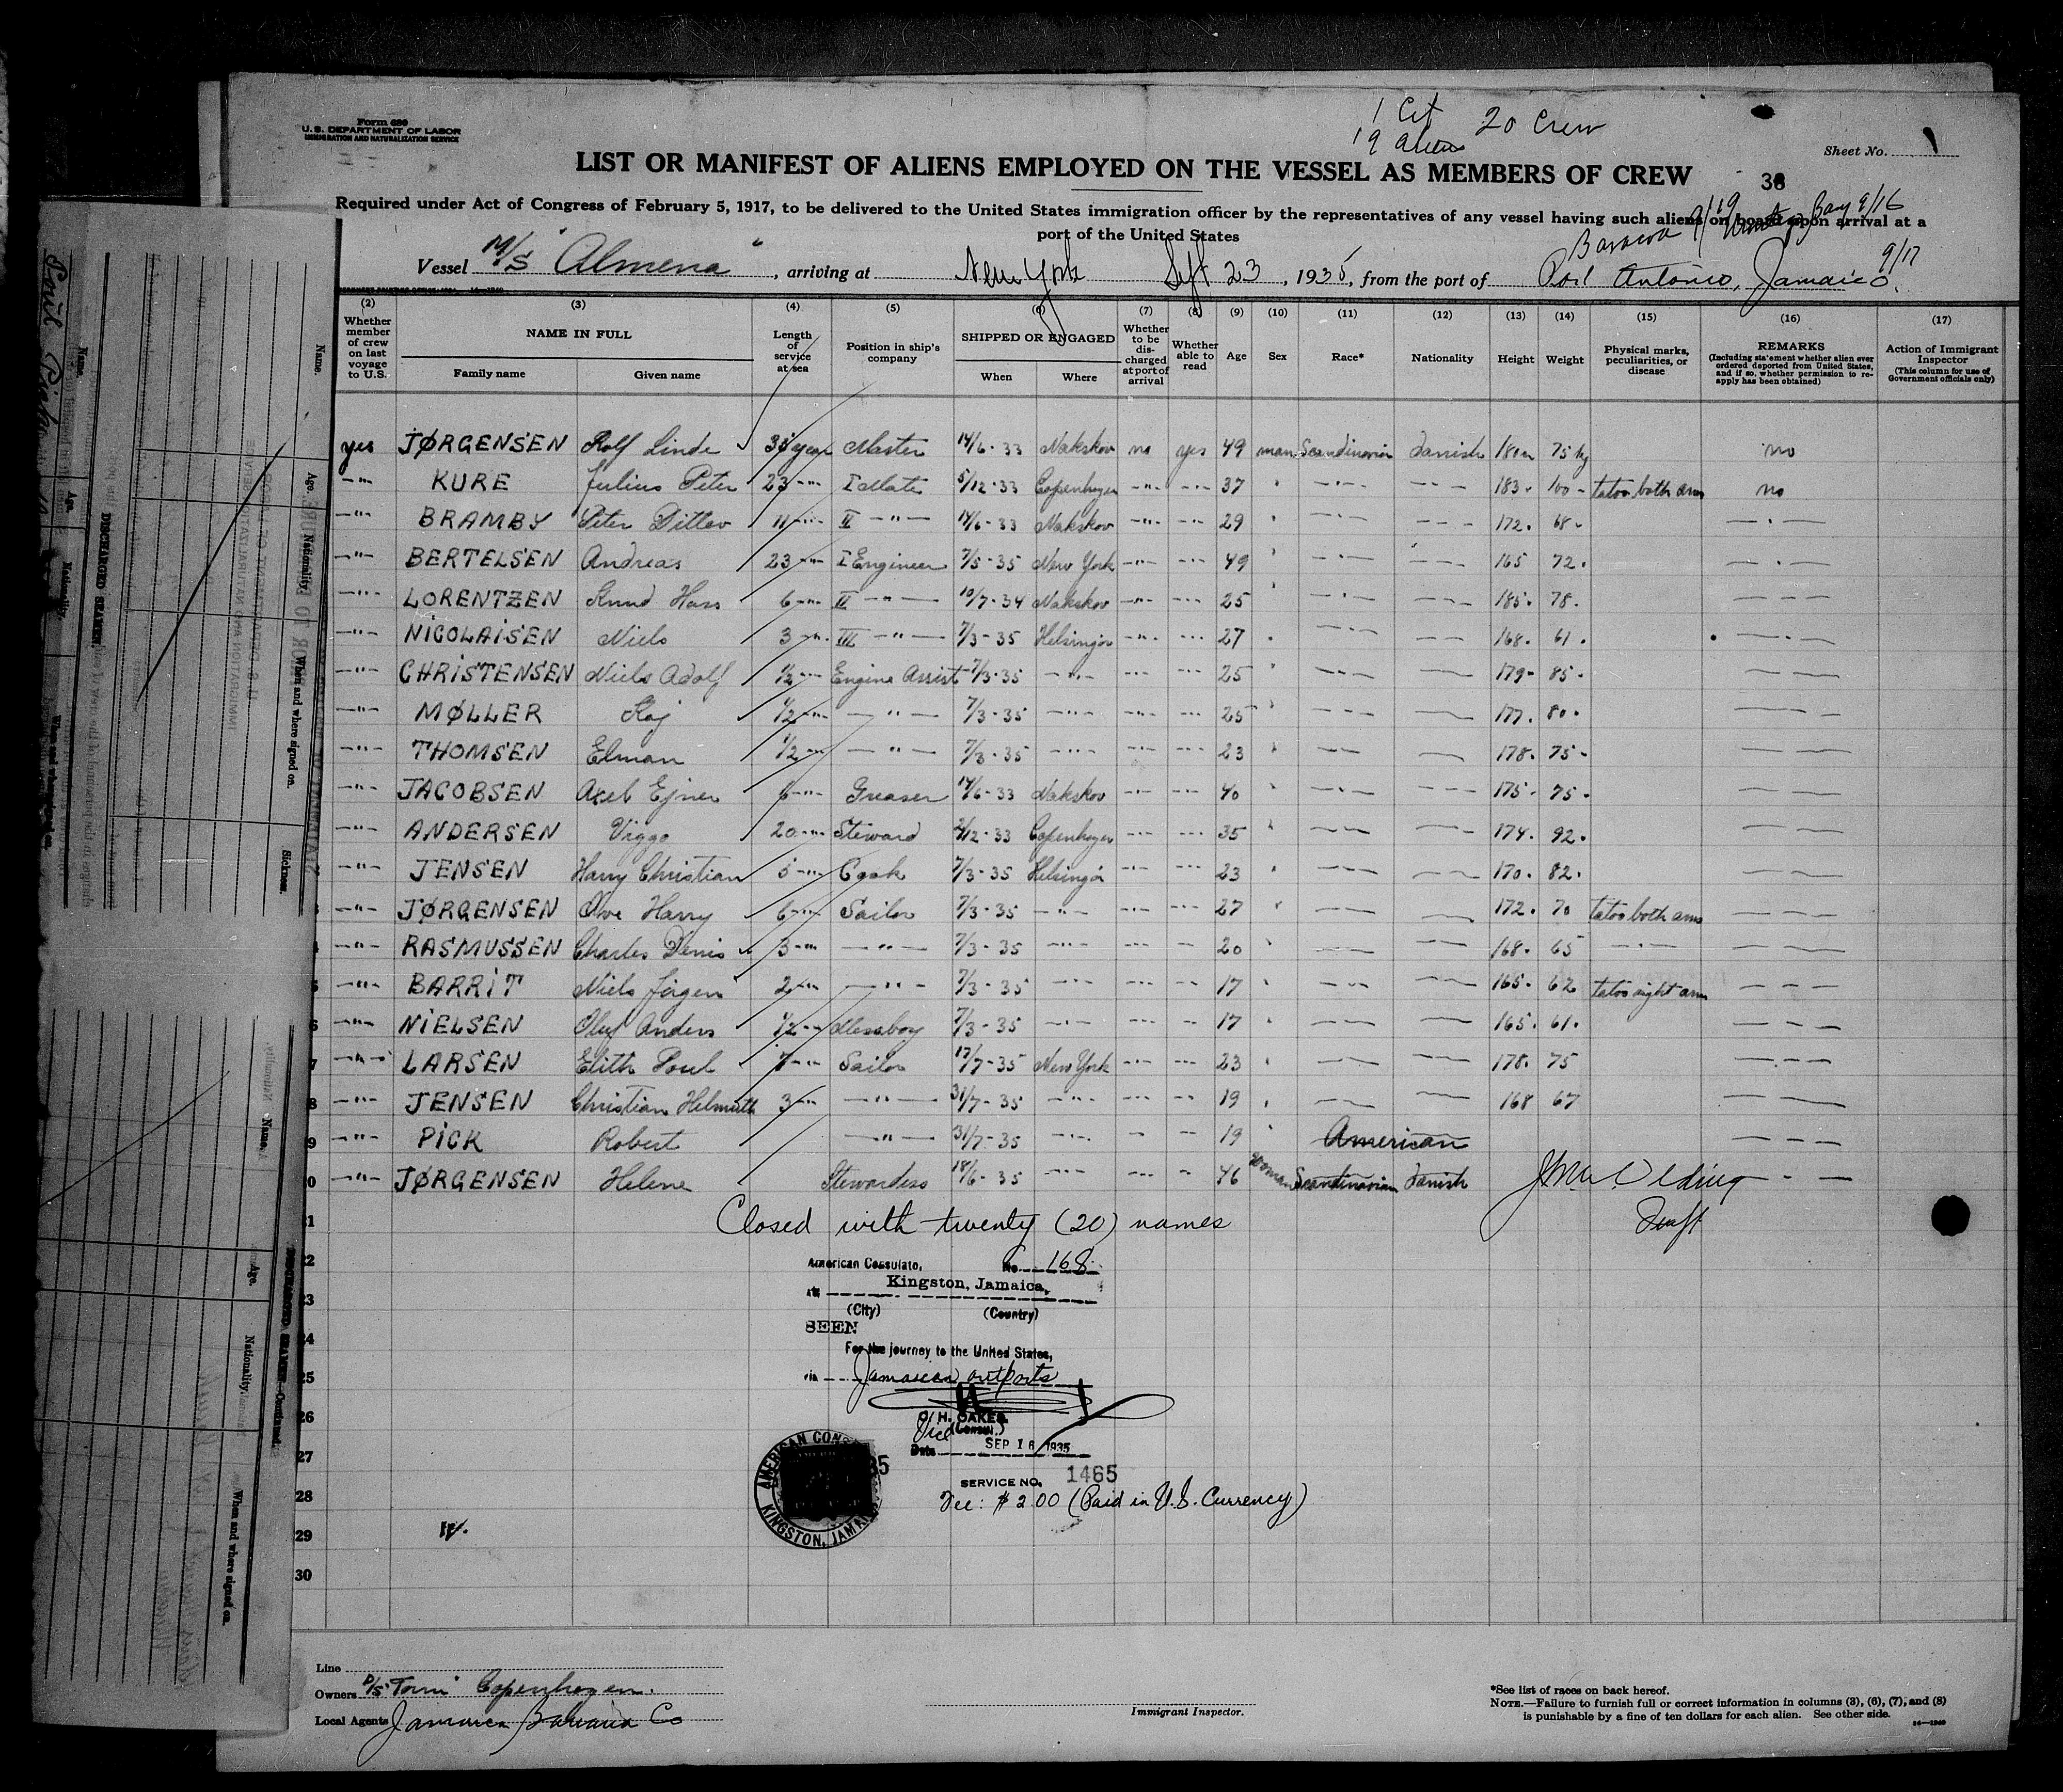 Form 680
U.S. DEPARTMENT OF LABOR
IMMIGRATION AND NATURALIZATION SERVICE
1 Cit 20 Crew
19 aliens
Sheet No. 1
LIST OR MANIFEST OF ALIENS EMPLOYED ON THE VESSEL AS MEMBERS OF CREW
38
Required under Act of Congress of February 5, 1917, to be delivered to the United States immigration officer by the representatives of any vessel having such aliens on board upon arrival at a
port of the United States
Baracoa 9/19 Bay 9/16
Vessel M/S "Almena", arriving at New York Sept 23, 1935, from the port of Port Antonio, Jamaica. 9/17
(2) (3) (4) (5) (6) (7) (8) (9) (10) (11) (12) (13) (14) (15) (16) (17)
Whether member of crew on last voyage to U.S. NAME IN FULL Family name Given name Length of service at sea Position in ship's company SHIPPED OR ENGAGED When Where Whether to be discharged at port of arrival Whether able to read Age Sex Race* Nationality Height Weight Physical marks, peculiarities, or disease REMARKS (Including statement whether alien ever ordered deported from United States, and if so, whether permission to re-apply has been obtained) Action of Immigrant Inspector (This column for use of Government officials only)
yes JØRGENSEN Rolf Linde 30 year Master 14/6-33 Nakskov no yes 49 man Scandinavian danish 180 75 kg no
-"- KURE Julius Peter 23 -"- I Mate 5/12-33 Copenhagen -"- -"- 37 " -"- -"- 183 100 tatoo both arm no
-"- BRAMBY Peter Ditlev 11 -"- II -"- 14/6-33 Nakskov -"- -"- 29 " -"- -"- 172 68 -"-
-"- BERTELSEN Andreas 23 -"- I Engineer 7/5-35 New York -"- -"- 49 " -"- -"- 165 72 -"-
-"- LORENTZEN Knud Hans 6 -"- II -"- 10/7-34 Nakskov -"- -"- 25 -"- -"- 185 78 -"-
-"- NICOLAISEN Niels 3 -"- III -"- 7/3-35 Helsingør -"- -"- 27 " -"- -"- 168 61 -"-
-"- CHRISTENSEN Niels Adolf 1/2 -"- Engine Assist 7/3-35 -"- -"- -"- 25 " -"- -"- 179 85 -"-
-"- MØLLER Kaj 1/2 -"- -"- 7/3-35 -"- -"- -"- 25 " -"- -"- 177 80 -"-
-"- THOMSEN Elman 1/2 -"- -"- 7/3-35 -"- -"- -"- 23 " -"- -"- 178 75 -"-
-"- JACOBSEN Axel Ejner 6 -"- Greaser 14/6-33 Nakskov -"- -"- 40 " -"- -"- 175 75 -"-
-"- ANDERSEN Viggo 20 -"- Steward 2/12-33 Copenhagen -"- -"- 35 " -"- -"- 174 92 -"-
-"- JENSEN Harry Christian 5 -"- Cook 7/3-35 Helsingør -"- -"- 23 " -"- -"- 170 82 -"-
-"- JØRGENSEN Ove Harry 6 -"- Sailor 7/3-35 -"- -"- -"- 27 " -"- -"- 172 70 tatoo both arms -"-
-"- RASMUSSEN Charles Denis 3 -"- -"- 7/3-35 -"- -"- -"- 20 " -"- -"- 168 65 -"- -"-
-"- BARRIT Niels Jørgen 2 -"- -"- 7/3-35 -"- -"- -"- 17 " -"- -"- 165 62 tatoo right arm -"-
-"- NIELSEN Oluf Anders 1/2 -"- Messboy 7/3-35 -"- -"- -"- 17 " -"- -"- 165 61 -"-
-"- LARSEN Edith Poul 7 -"- Sailor 17/7-35 New York -"- -"- 23 " -"- -"- 178 75 -"-
-"- JENSEN Christian Helmuth 3 -"- -"- 31/7-35 -"- -"- -"- 19 " -"- -"- 168 67 -"-
-"- PICK Robert -"- 31/7-35 -"- -"- -"- 19 " American -"-
-"- JØRGENSEN Helene Stewardess 18/6-35 -"- -"- -"- 46 woman Scandinavian danish -"-
Closed with twenty (20) names
American Consulate, No. 168
at Kingston, Jamaica,
(City) (Country)
SEEN
For the journey to the United States,
via Jamaican outports
O. H. OAKES
Vice (Consul.)
Date SEP 16 1935
SERVICE NO. 1465
Fee: $2.00 (Paid in U.S. Currency)
AMERICAN CONS
KINGSTON, JAMAI
22
23
24
25
26
27
28
29
30
Line
Owners D/S "Torm" Copenhagen.
Local Agents Jamaica Banana Co
Immigrant Inspector.
*See list of races on back hereof.
NOTE.—Failure to furnish full or correct information in columns (3), (6), (7), and (8)
is punishable by a fine of ten dollars for each alien. See other side.
14—1240